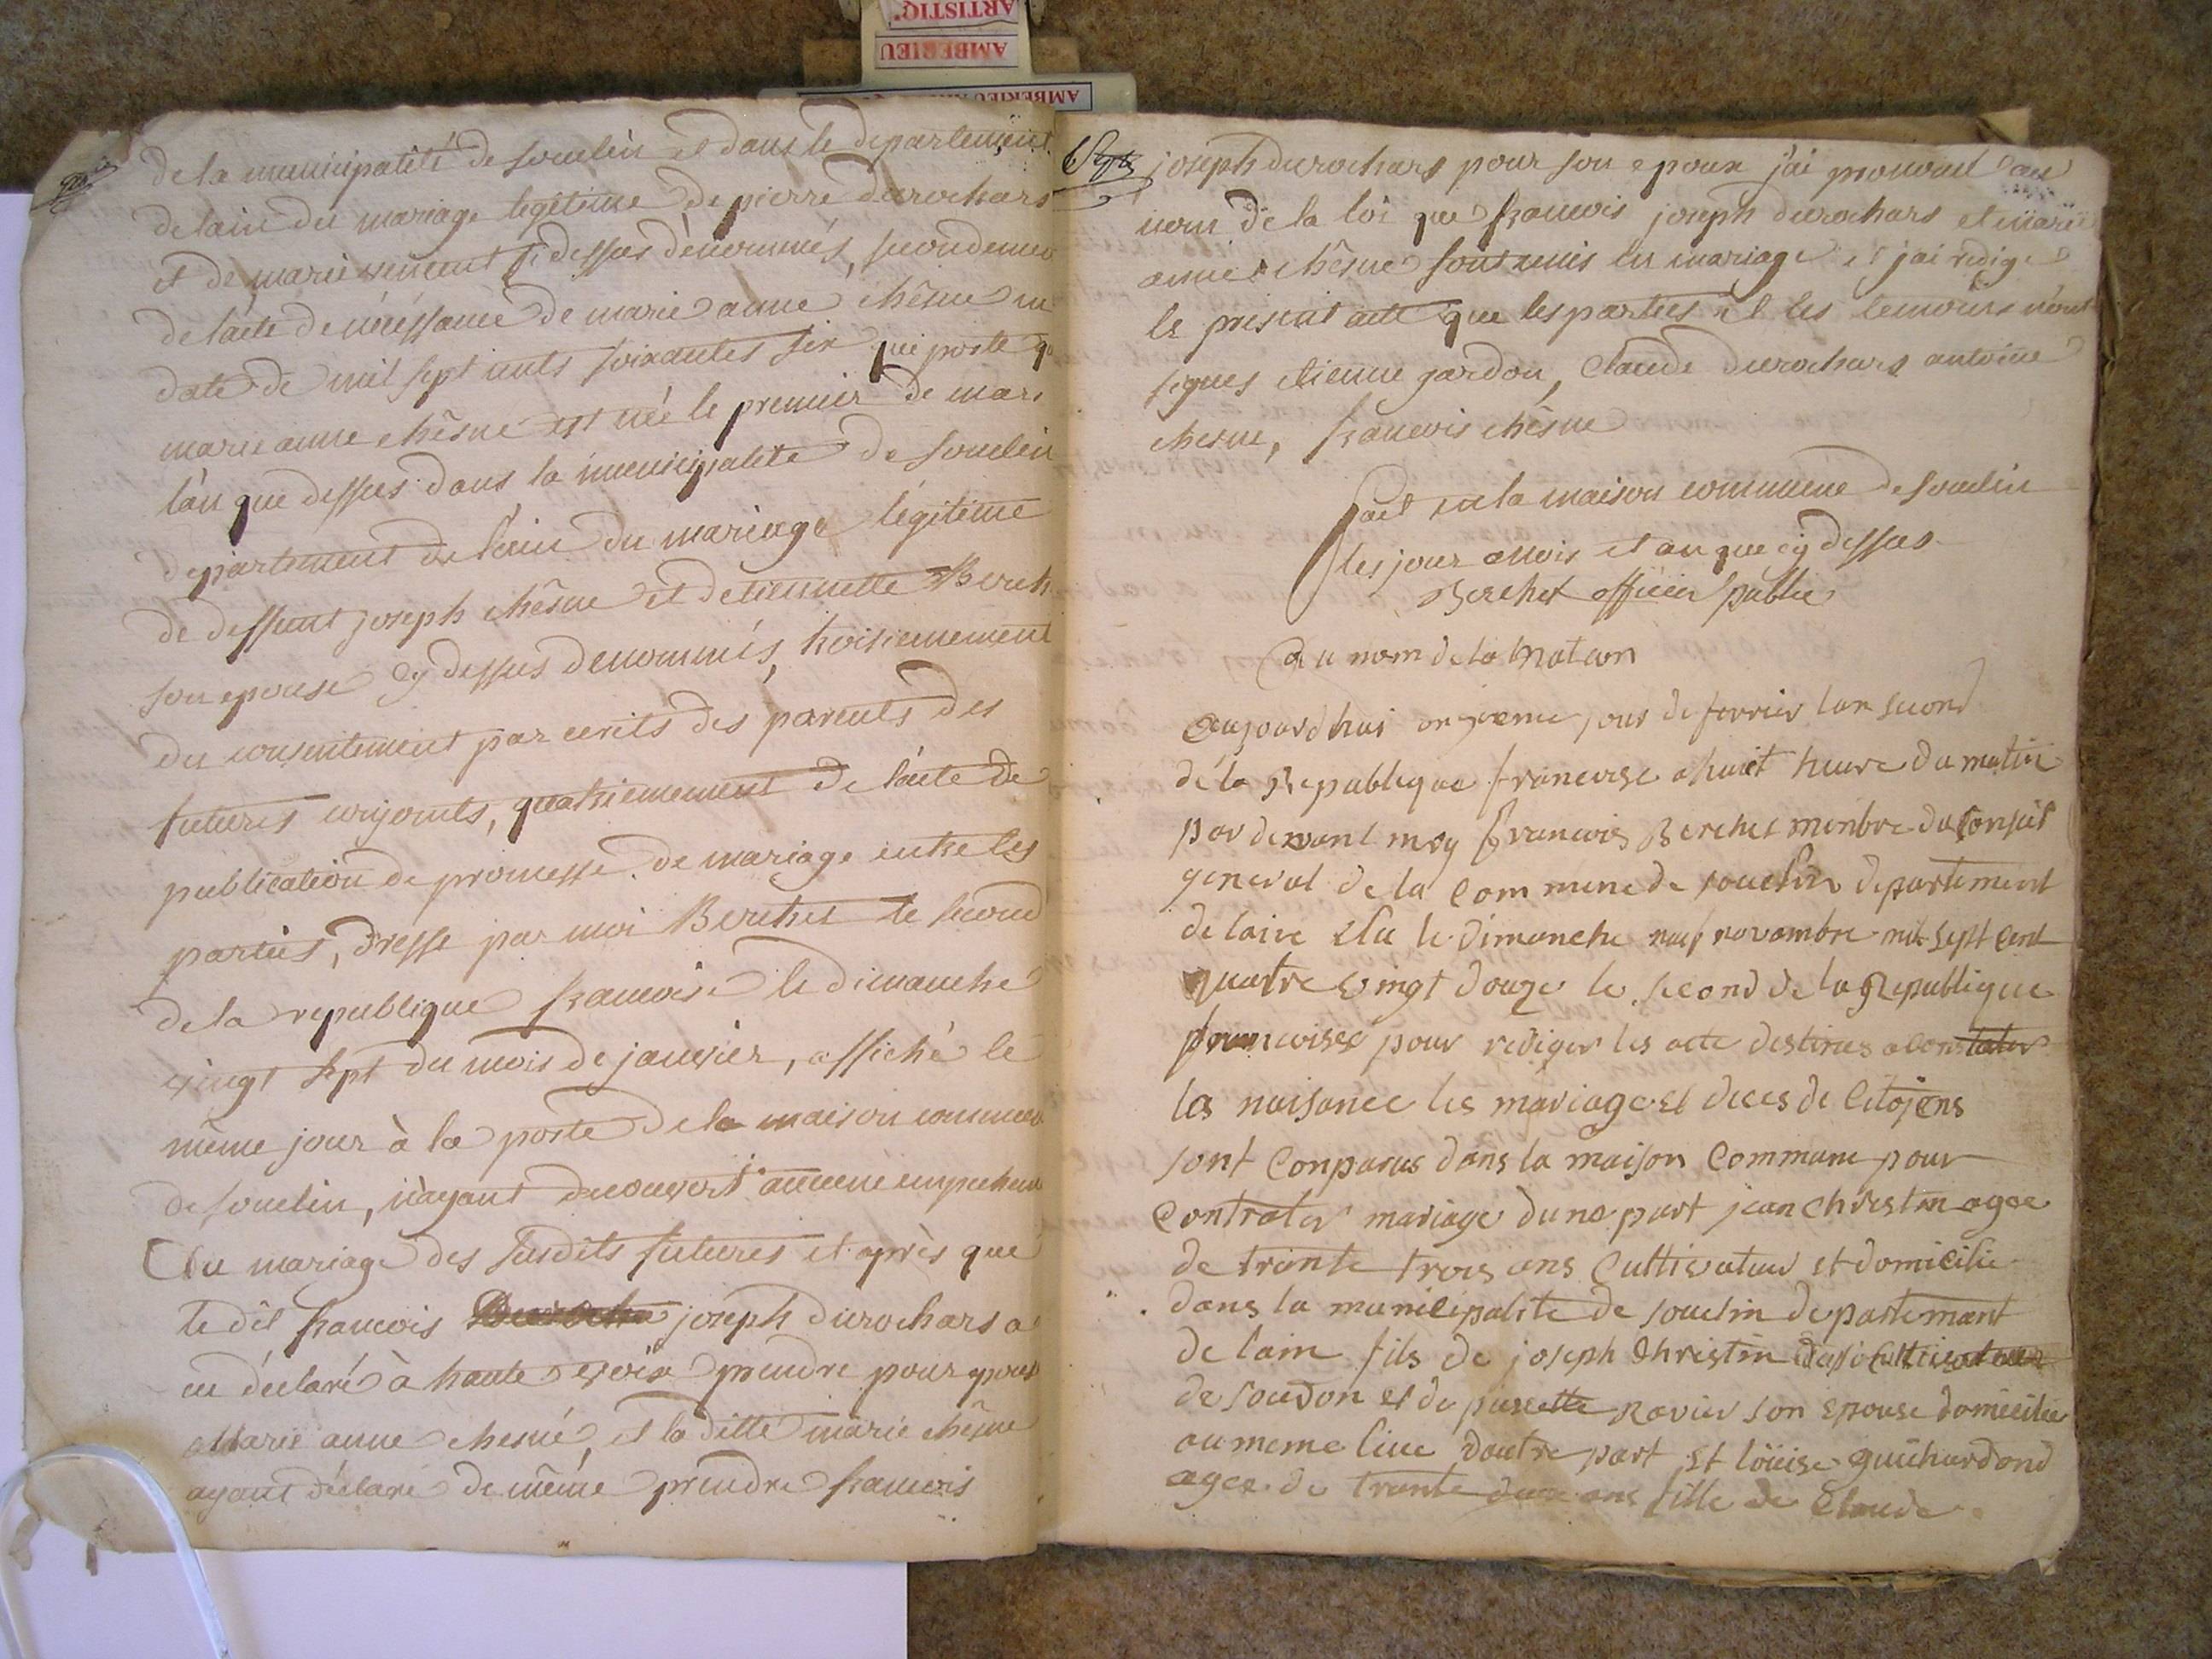 ARTISTIQ.
AMBERIEU
de la municipalité de souclin et dans le departement
de lain du mariage legitime de pierre durochars
et de marie dessus dénommés, secondement
de lacte de néessance de marie anne chêsne en
date de mil sept cents soixantes six qui porte q
marie anne chêsne est née le premier de mars
l'an que dessus dans la municipalité de souclin
departement de l'ain du mariage légitime
de deffunt joseph chêsne et detiennette Berch
son epouse cy dessus denommés, troisiemement
du consentement par ecrits des parents des
futures conjoints, quatriemement de l'acte de
publication de promesse de mariage entre les
parties, dressé par moi Berchet le second
de la republique francoise le dimanche
vingt sept du mois de janvier, affiché le
même jour à la porte de la maison commun
de souclin, n'ayant decouvert aucune empechem
Au mariage des susdits futures et après que
le dit francois joseph durochars a
eu déclaré à haute voix prendre pour epouse
Marie anne chesne, et la ditte marie chêsne
ayant déclaré de même prendre francois
joseph durochars pour son epoux j'ai prononcé au
nom de la loi que francois joseph durochars et marie
anne chêsne sont unis en mariage et j'ai redigé
le present acte que les parties et les temoins n'ont
signes etienne gardon, Claude durochars antoine
chesne, francois chêsne
fait en la maison commune de souclin
les jour mois et an que cy dessus
Berchet officier public
Au nom de la Nation
Aujourdhui onzieme jour de fevrier lan second
de la Republique francoise a huit heure du matin
par devant moy francois Berchet menbre du Conseil
general de la Commune de souclin departement
de lain elu le dimanche neuf novambre mil sept cent
quatre vingt douze le second de la Republique
francoisse pour rediger les acte destines a constater
les naisance les mariage et deces de Citojens
sont Conparus dans la maison Commune pour
Contrater mariage dune part jean Christin agee
de trante trois ans Cultivateur et domicilie
dans la municipalite de souclin departemant
de lain fils de joseph Christin Cultivateur
de soudon et de pierrette Ravier son epouse domicilie
au meme lieu dautre part et loüise guichardond
agee de trante deux ans fille de Claude